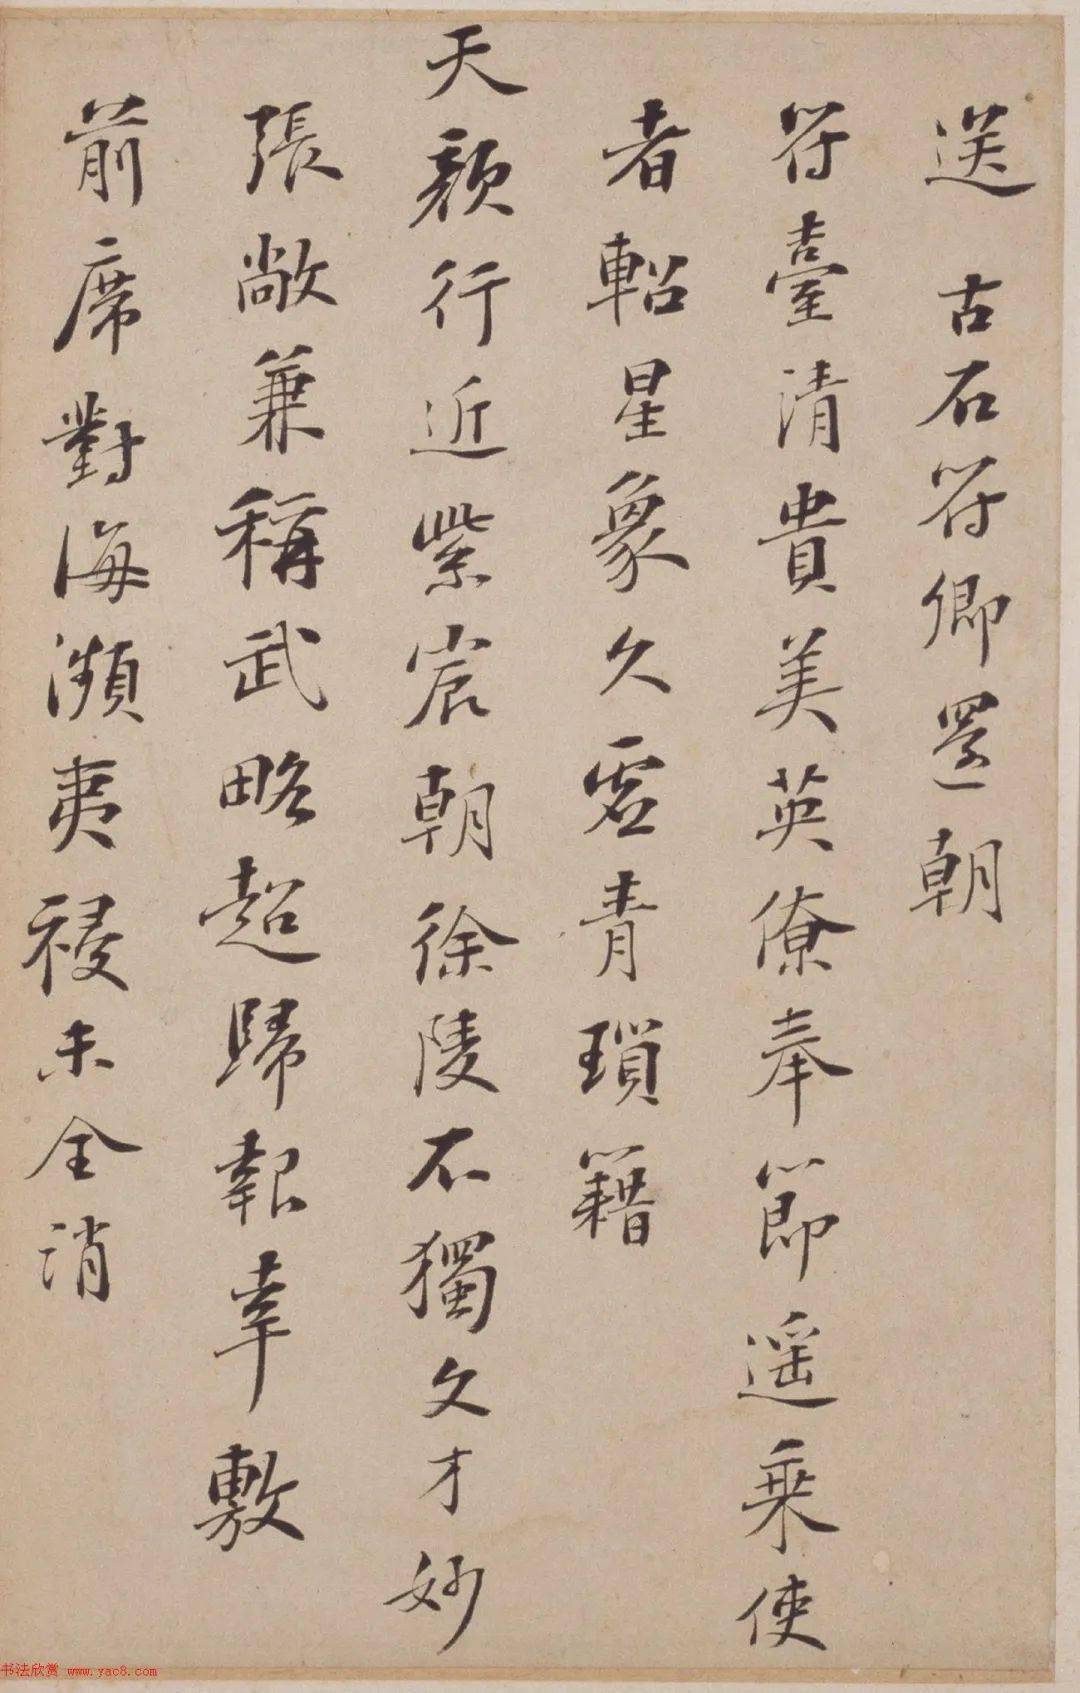 送 古石符卿還朝
符臺清貴美英僚奉節遥乘使
者軺星象久虛青瑣籍
天顏行近紫宸朝徐陵不獨文才妙
張敞兼稱武略超歸報幸敷
前席對海瀕夷祲未全消
书法欣赏 www.yac8.com